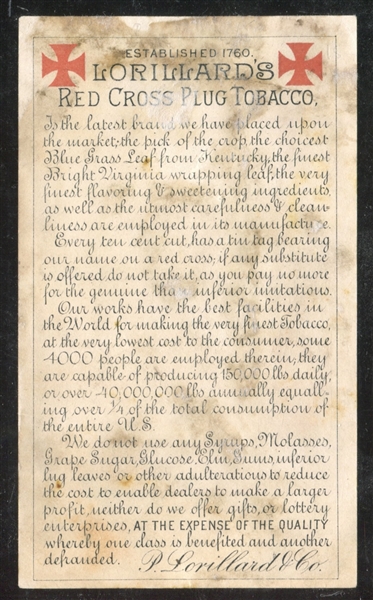 ESTABLISHED 1760.
LORILLARD'S
RED CROSS PLUG TOBACCO,
Is the latest brand we have placed upon
the market; the pick of the crop, the choicest
Blue Grass Leaf from Kentucky, the finest
Bright Virginia wrapping leaf, the very
finest flavoring & sweetening ingredients,
as well as the utmost carefulness & clean-
liness are employed in its manufacture.
Every ten cent cut, has a tin tag bearing
our name on a red cross; if any substitute
is offered do not take it, as you pay no more
for the genuine than inferior imitations.
Our works have the best facilities in
the World for making the very finest Tobacco,
at the very lowest cost to the consumer, some
4000 people are employed therein; they
are capable of producing 150,000 lbs daily,
or over 40,000,000 lbs annually equall-
ing over 1/4 of the total consumption of
the entire U.S.
We do not use any Syrups, Molasses,
Grape Sugar, Glucose, Elm, Gums, inferior
lug leaves or other adulterations to reduce
the cost to enable dealers to make a larger
profit, neither do we offer gifts, or lottery
enterprises, AT THE EXPENSE OF THE QUALITY
whereby one class is benefited and another
defrauded. P. Lorillard & Co.